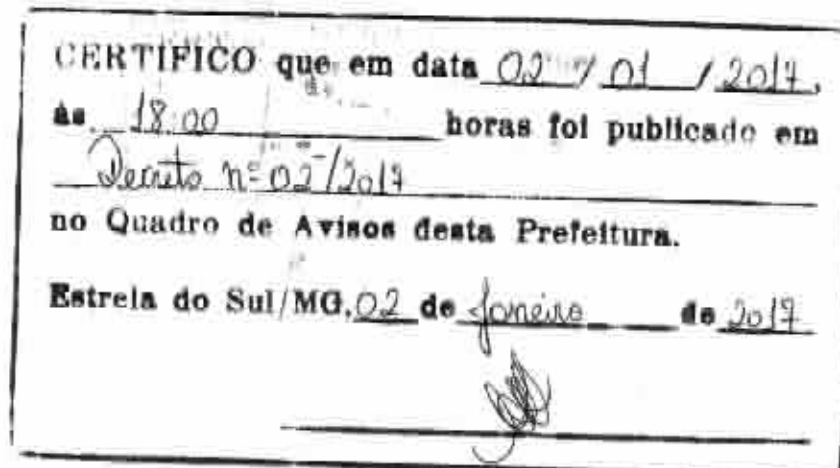 CERTIFICO que em data 02 / 01 / 2017,
às 18:00 horas foi publicado em
Decreto nº 02/2017
no Quadro de Avisos desta Prefeitura.
Estrela do Sul/MG, 02 de Janeiro de 2017